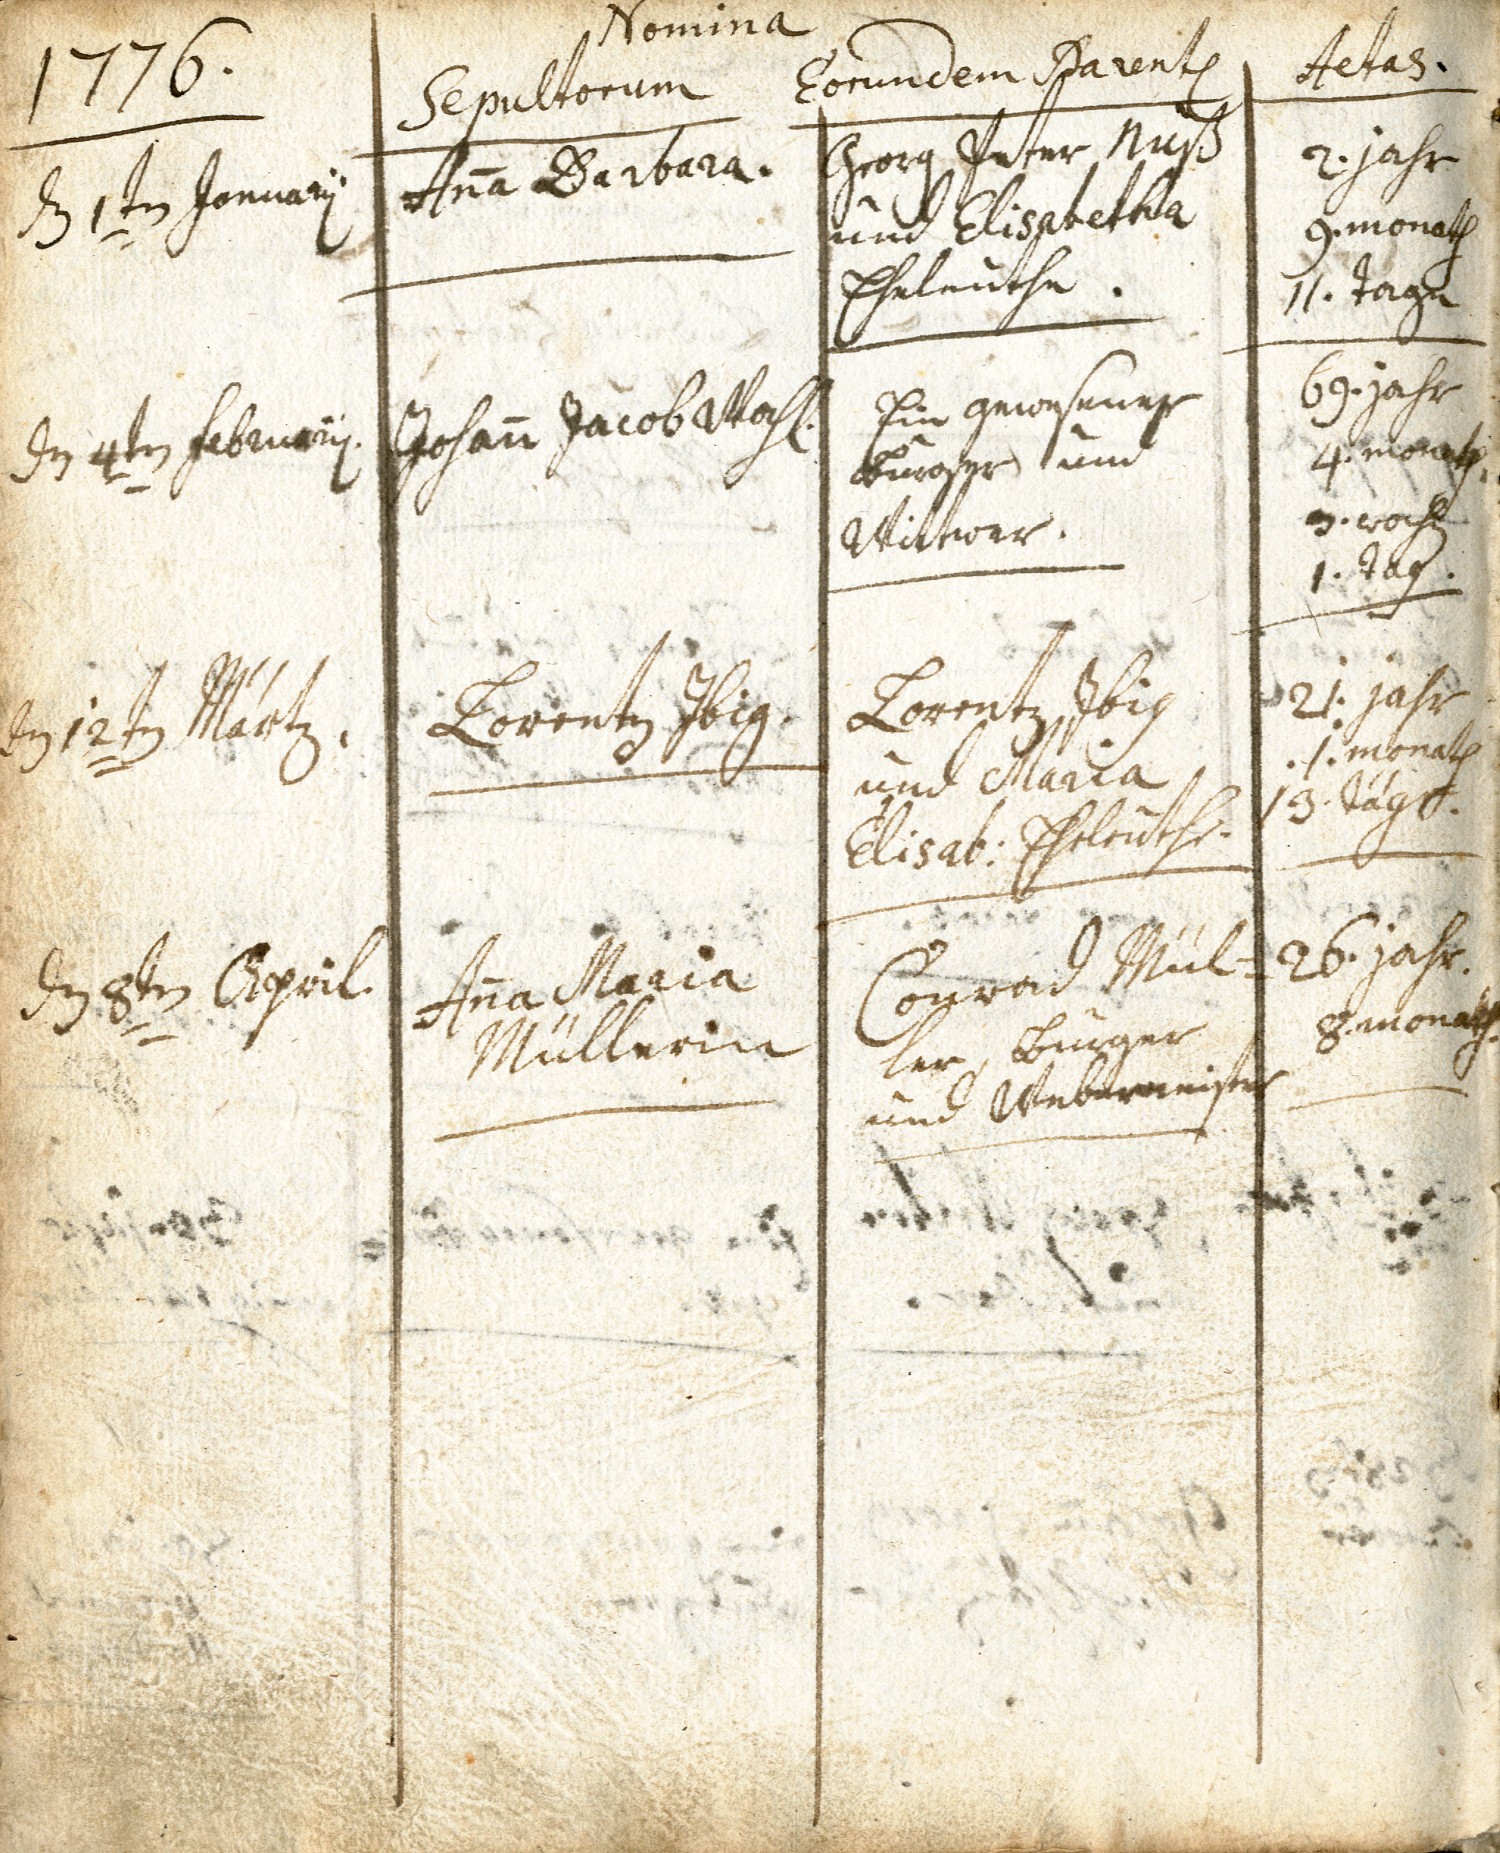 Nomina
1776.
Sepultorum
Eorundem Parent
Aetas.
dn 1tn January
Aña Barbara.
Georg Peter Nuß
und Elisabetha
Eheleuthe.
2. jahr
9. monath
11. tage
dn 4tn february.
Johañ Jacob
Ein gewesener
Burger und
Wittwer.
69. jahr
4. monath,
3. woch
1. tag.
dn 12tn Märtz.
Lorentz Ibig.
Lorentz Ibig
und Maria
Elisab: Eheleuthe.
21. jahr
.1. monath
13. täge.
dn 8tn April.
Aña Maria
Müllerin
Conrad Mül-
ler, Burger
und Webermeister
26. jahr.
8. monath.